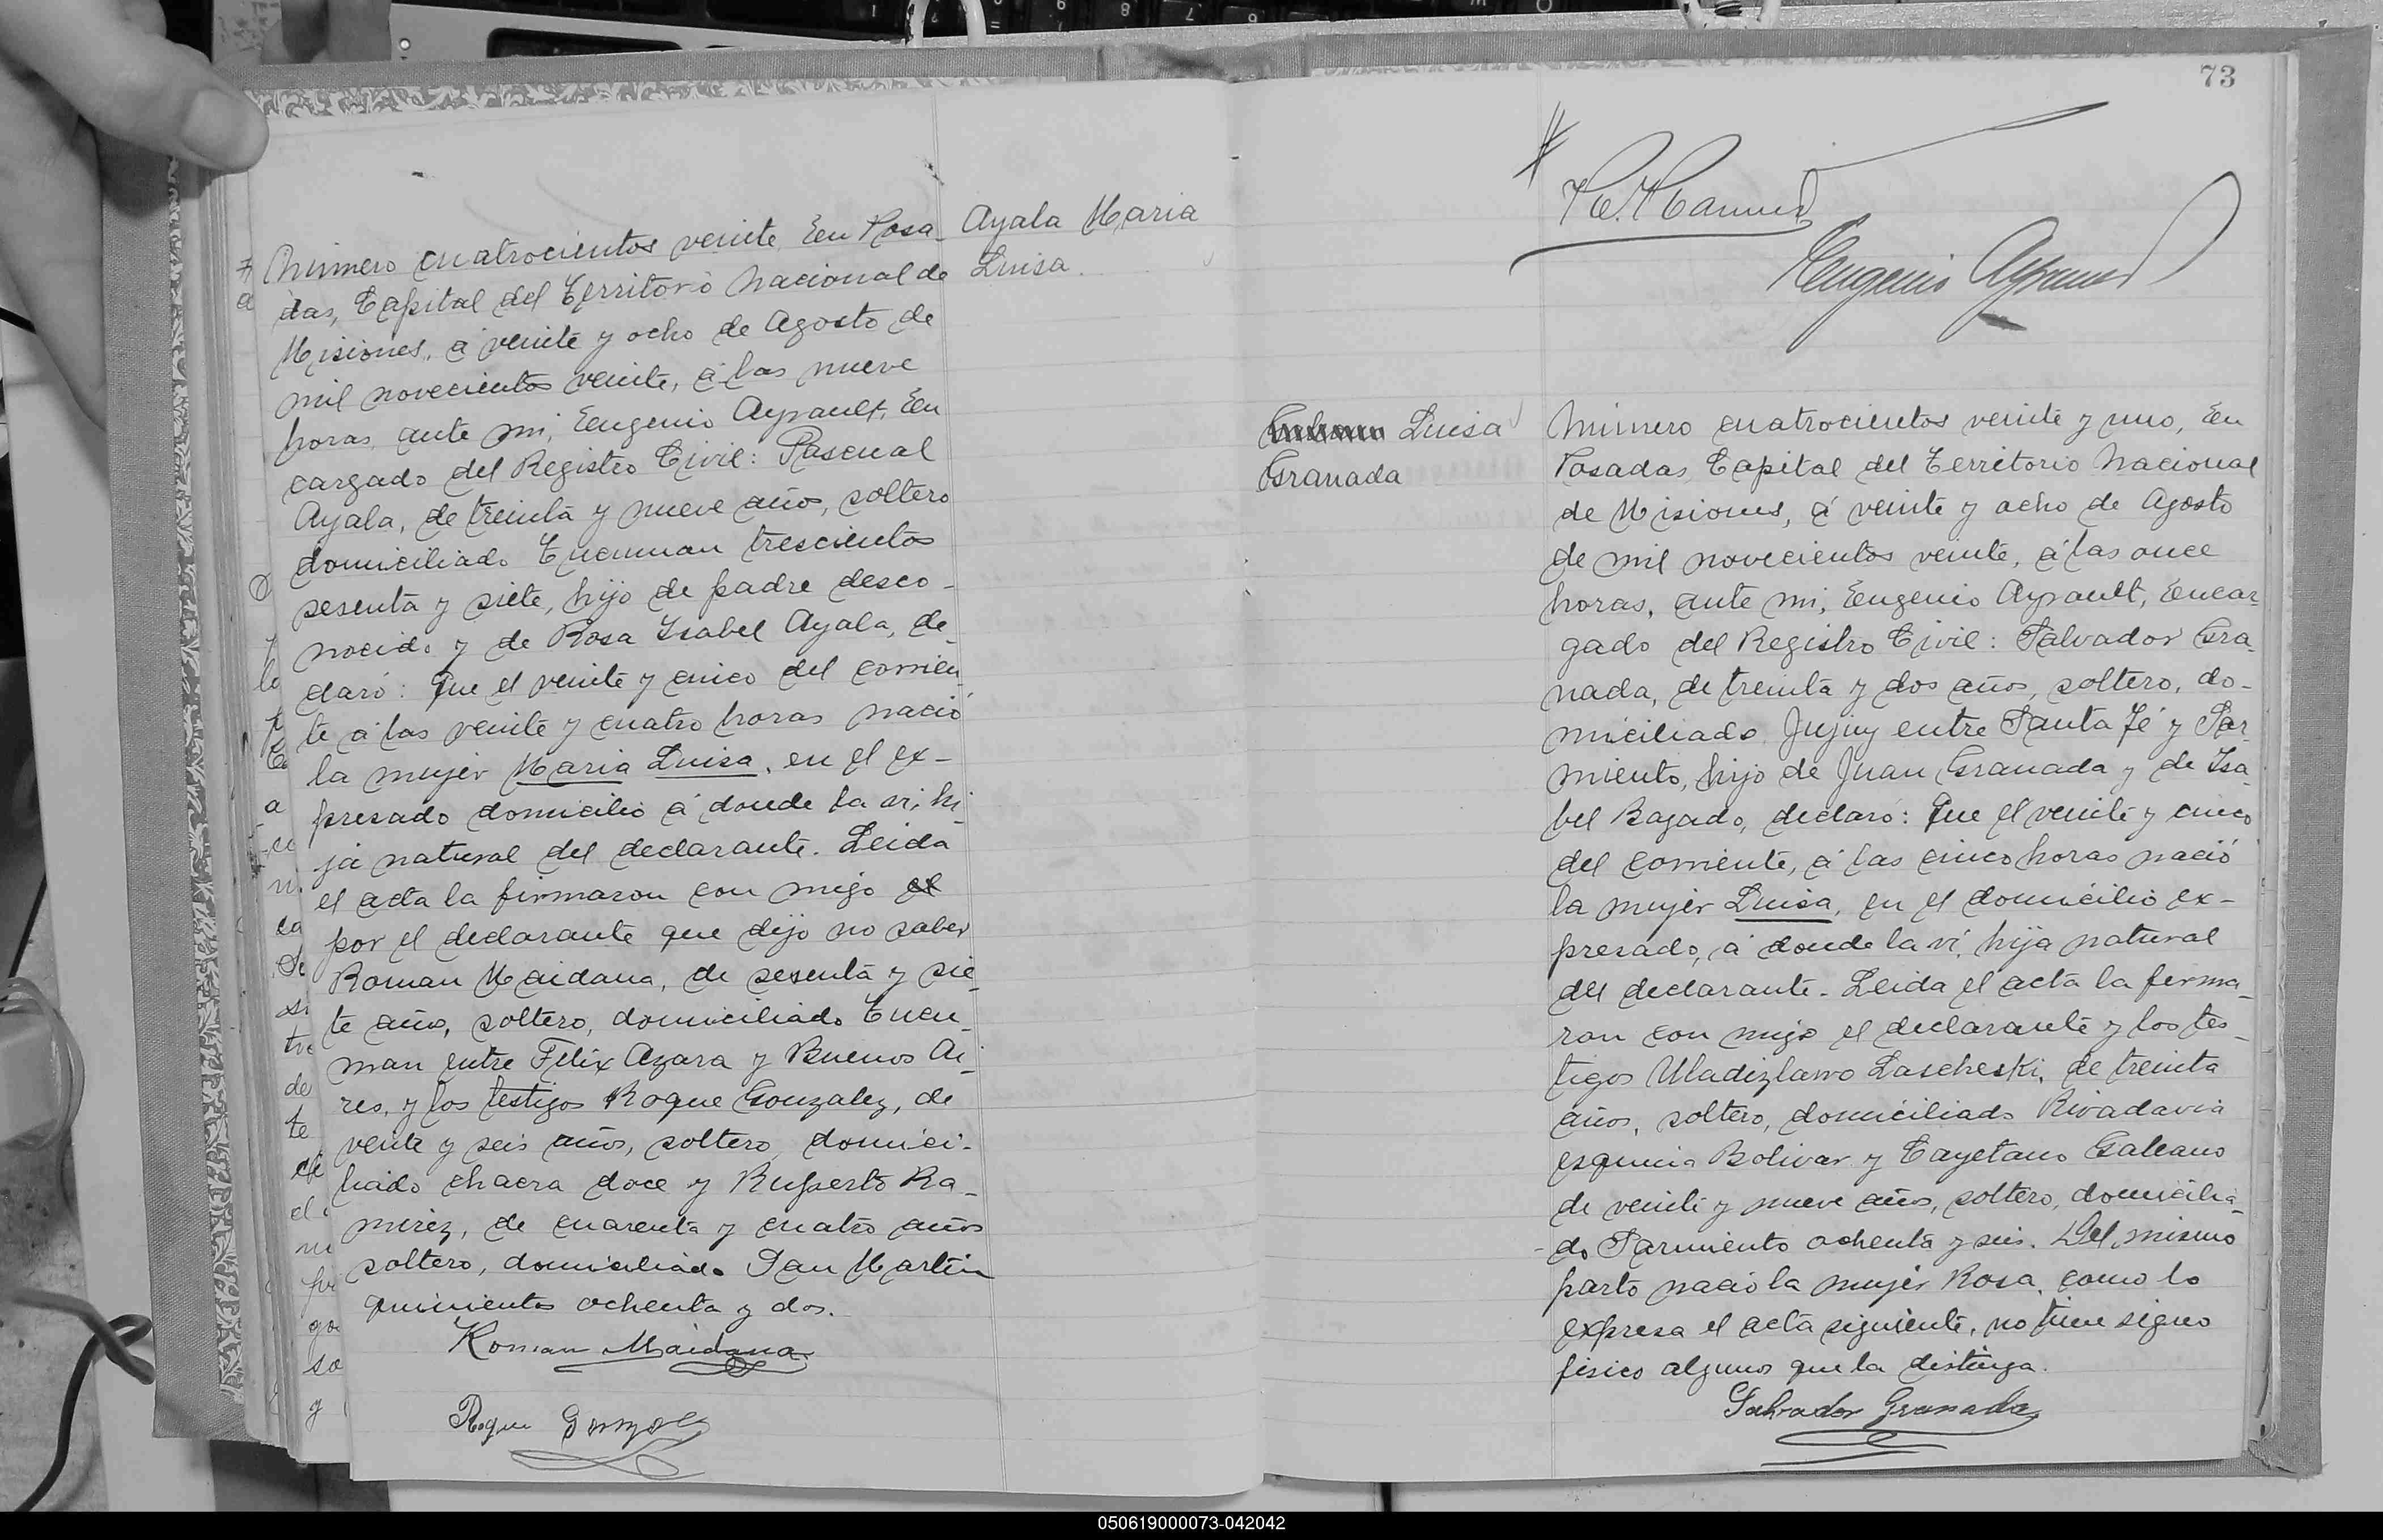 Ayala Maria
Luisa.
Número cuatrocientos veinte, En Posa-
das, Capital del Territorio Nacional de
Misiones, á veinte y ocho de Agosto de
mil novecientos veinte, á las nueve
horas, ante mi, Eugenio Ayrault, En
cargado del Registro Civil: Pascual
Ayala, de treinta y nueve años, soltero
domiciliado Tucuman trescientos
sesenta y siete, hijo de padre desco-
nocido y de Rosa Isabel Ayala, de-
claró: Que el veinte y cinco del corrien
te á las veinte y cuatro horas nació
la mujer Maria Luisa, en el ex-
presado domicilio á donde la vi, hi-
ja natural del declarante. Leida
el acta la firmaron con migo el
por el declarante que dijo no saber
Roman Maidana, de sesenta y sie-
te años, soltero, domiciliado Tucu-
man entre Felix Azara y Buenos Ai-
res, y los testigos Roque Gonzalez, de
veinte y seis años, soltero, domici-
liado chacra doce y Ruperto Ra-
mirez, de cuarenta y cuatro años
soltero, domiciliado San Martin
quinientos ochenta y dos.
Roman Maidana
Roque Gonzalez
73
Eugenio Ayrault
Luisa
Granada
Número cuatrocientos veinte y uno, En
Posadas, Capital del Territorio Nacional
de Misiones, á veinte y ocho de Agosto
de mil novecientos veinte, á las once
horas, ante mi, Eugenio Ayrault, Encar-
gado del Registro Civil: Salvador Gra-
nada, de treinta y dos años, soltero, do-
miciliado Jujuy entre Santa Fé y Sar-
miento, hijo de Juan Granada y de Isa-
bel Bagado, declaró: Que el veinte y cinco
del corriente, á las cinco horas nació
la mujer Luisa, en el domicilio ex-
presado, á donde la vi, hija natural
del declarante. Leida el acta la firma-
ron con migo el declarante y los tes-
tigos Uladizlavo Lascheski, de treinta
años, soltero, domiciliado Rivadavia
esquina Bolivar y Cayetano Galeano
de veinte y nueve años, soltero, domicilia-
do Sarmiento ochenta y seis. Del mismo
parto nació la mujer Rosa, como lo
expresa el acta siguiente, no tiene signo
fisico alguno que la distinga.
Salvador Granada
050619000073-042042